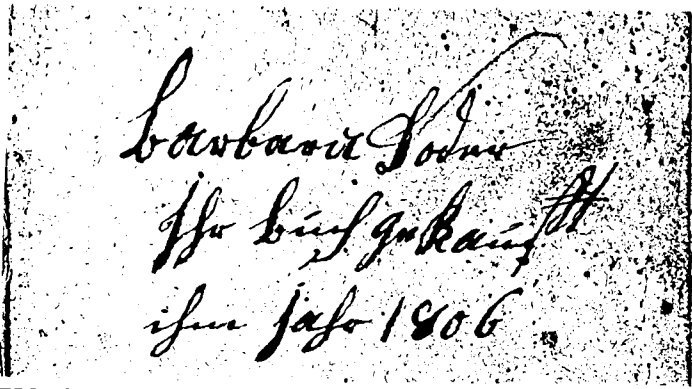 Barbara Yoder
ihr buch gekaufft
ihm jahr 1806